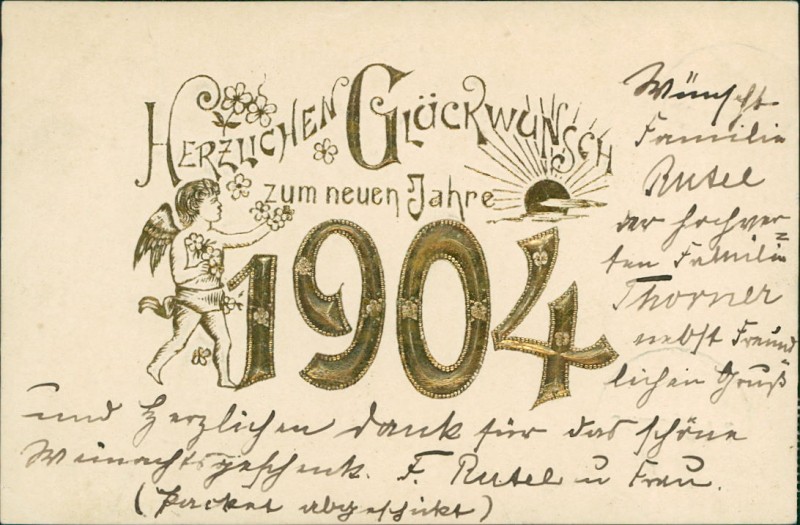 Herzlichen Glückwunsch
zum neuen Jahre
1904
Wünscht
Familie
Rutel
der hochver=
ten Familie
Thorner
nebst Freund
lichen Gruß
und Herzlichen dank für das schöne
Weinachtsgeschenk. F. Rutel u Frau.
(Packet abgeschikt)